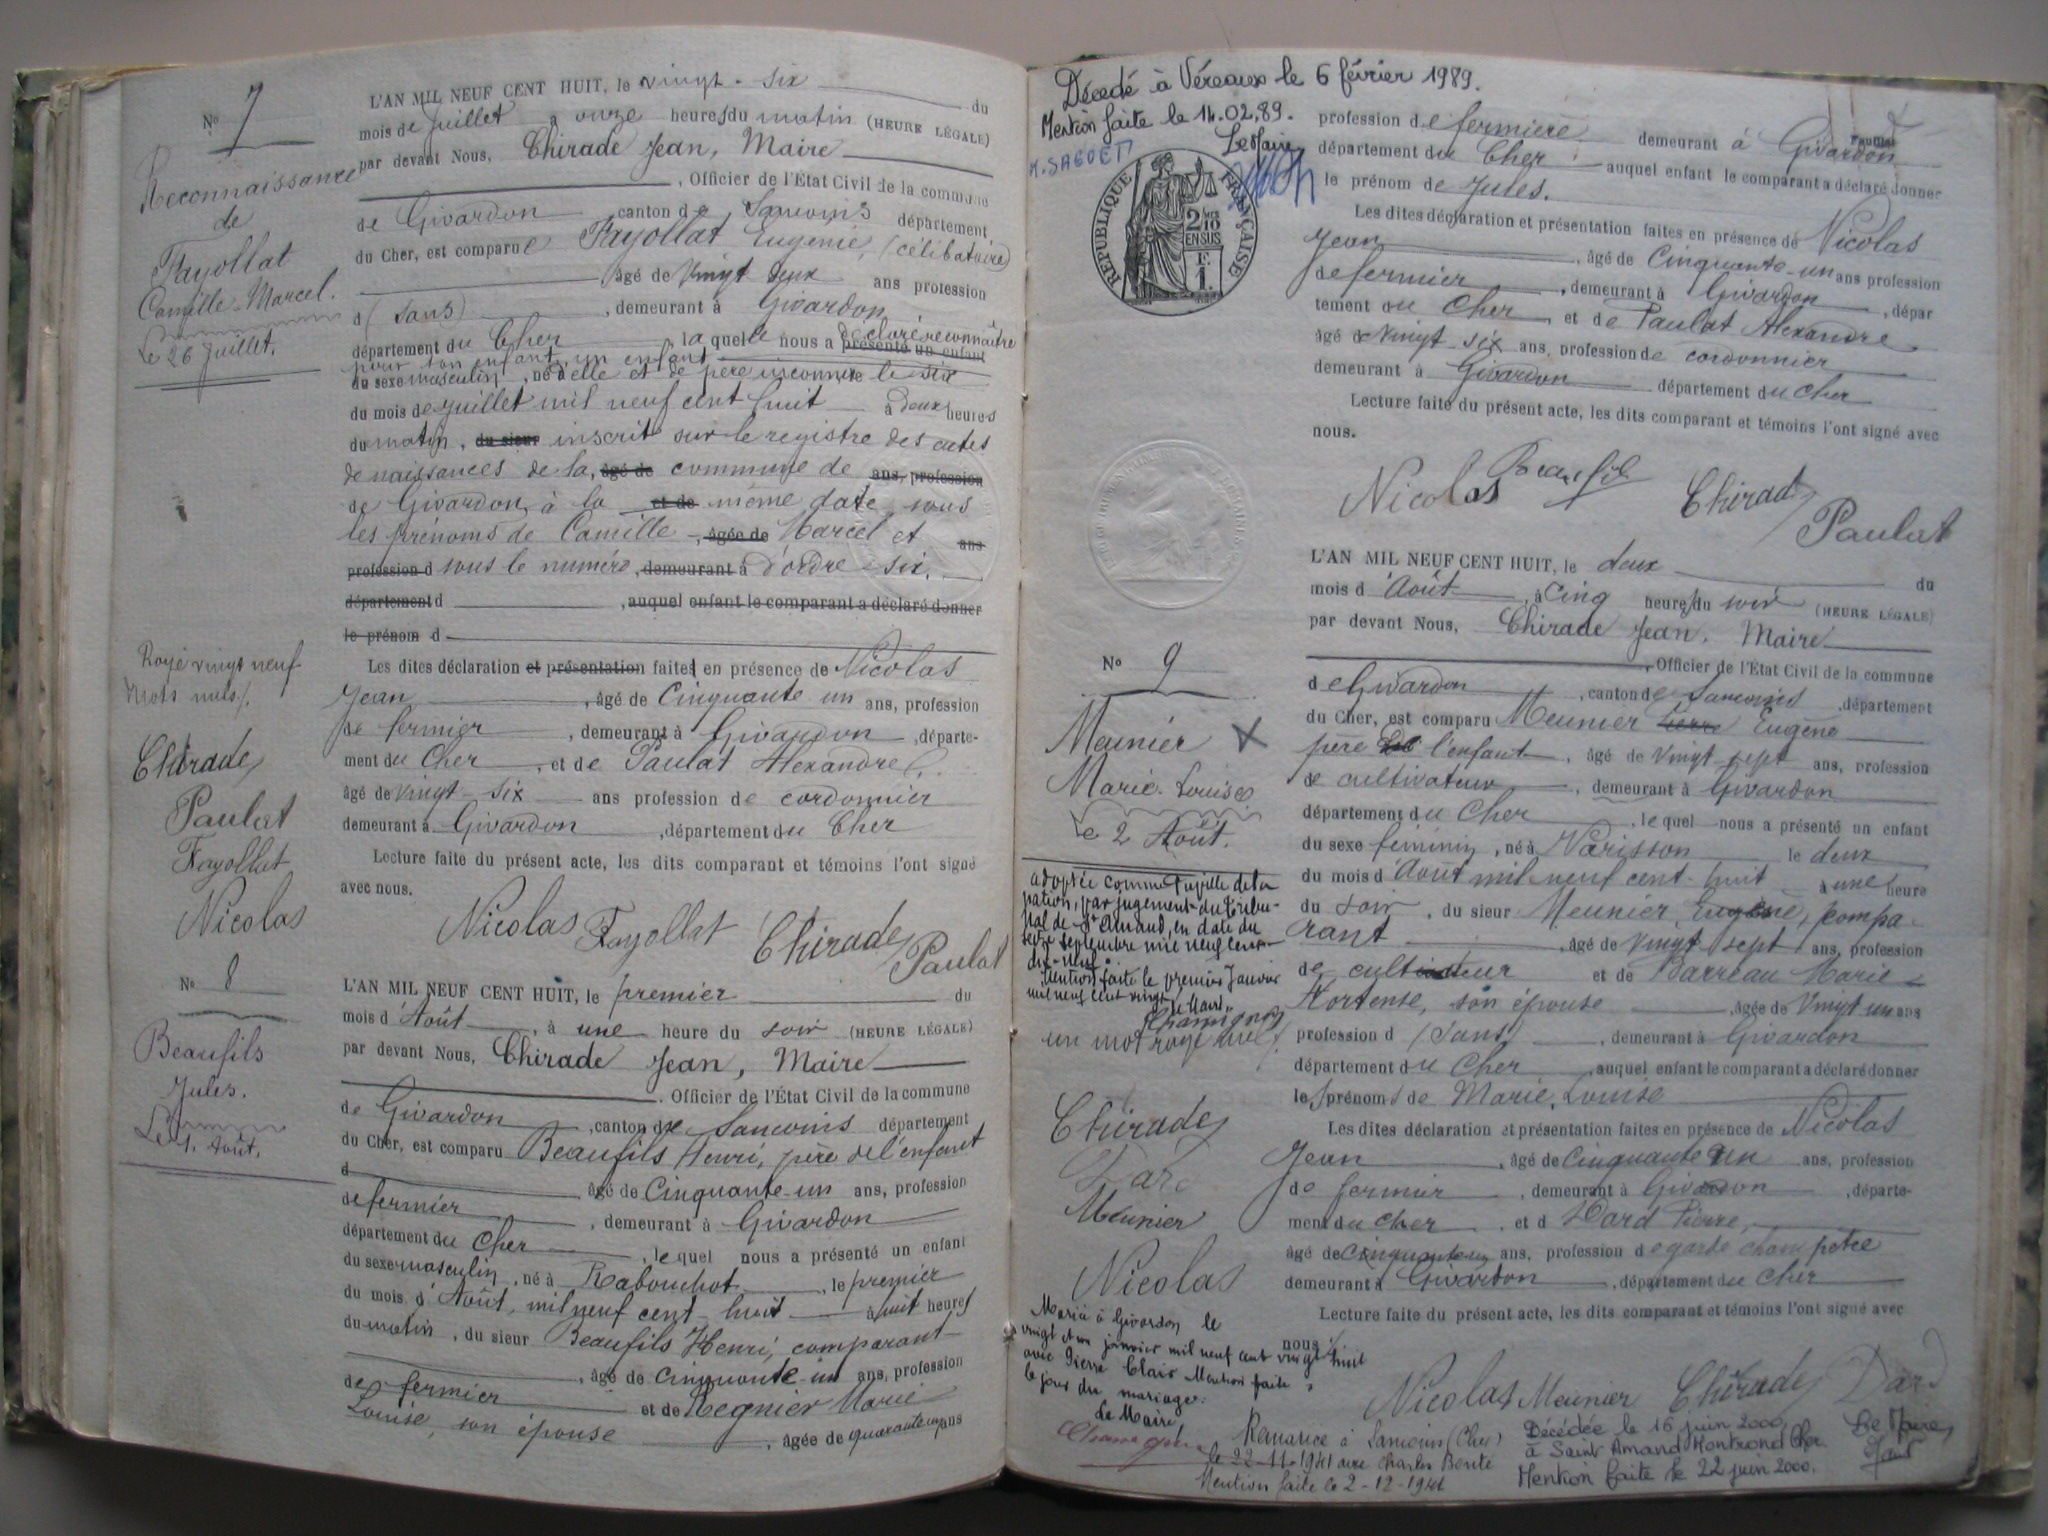 N° 7
Reconnaissance
de
Fayollat
Camille-Marcel.
Le 26 Juillet.
L'AN MIL NEUF CENT HUIT, le vingt-six du
mois de Juillet à onze heures du matin (HEURE LÉGALE)
par devant Nous, Chirade Jean, Maire
, Officier de l'État Civil de la commune
de Givardon canton de Sancoins département
du Cher, est comparue Fayollat Eugénie, (célibataire)
âgé de vingt deux ans profession
d (sans) , demeurant à Givardon
département du Cher , la quelle nous a présenté un enfant déclaré reconnaître
pour son enfant, un enfant
du sexe masculin , né d'elle et de père inconnu le six
du mois de Juillet mil neuf cent huit à deux heures
du matin , du sieur inscrit sur le registre des actes
de naissances de la, âgé de commune de ans, profession
de Givardon, à la et de même date, sous
les prénoms de Camille , âgée de Marcel et ans
profession d sous le numéro, demeurant à d'ordre six.
département d , auquel enfant le comparant a déclaré donner
le prénom d
Les dites déclaration et présentation faites en présence de Nicolas
Jean , âgé de Cinquante un ans, profession
de fermier , demeurant à Givardon , départe-
ment du Cher , et de Paulat Alexandre
âgé de vingt-six ans profession de cordonnier
demeurant à Givardon , département du Cher
Lecture faite du présent acte, les dits comparant et témoins l'ont signé
avec nous.
Rayé vingt neuf
mots nuls.
Chirade
Paulat
Fayollat
Nicolas
Nicolas Fayollat Chirade Paulat
N° 8
Beaufils
Jules.
Le 1. Août.
L'AN MIL NEUF CENT HUIT, le premier du
mois d'Août , à une heure du soir (HEURE LÉGALE)
par devant Nous, Chirade Jean, Maire
. Officier de l'État Civil de la commune
de Givardon , canton de Sancoins département
du Cher, est comparu Beaufils Henri, père de l'enfant
d , âgé de Cinquante-un ans, profession
de fermier , demeurant à Givardon
département du Cher , le quel nous a présenté un enfant
du sexe masculin , né à Rabouchot , le premier
du mois d'Août, mil neuf cent huit à huit heures
du matin , du sieur Beaufils Henri, comparant
, âgé de Cinquante-un ans, profession
de fermier et de Regnier Marie
Louise, son épouse , âgée de quarante un ans
Décédé à Véreaux le 6 février 1989.
Mention faite le 14.02.89.
Le Maire,
M. SAGOET
RÉPUBLIQUE FRANÇAISE
2/10 EN SUS
F. 1.
profession de fermière demeurant à Givardon
département du Cher auquel enfant le comparant a déclaré donner
le prénom de Jules.
Les dites déclaration et présentation faites en présence de Nicolas
Jean , âgé de Cinquante-un ans profession
de fermier , demeurant à Givardon , dépar
tement du Cher , et de Paulat Alexandre
âgé de vingt six ans, profession de cordonnier
demeurant à Givardon département du Cher
Lecture faite du présent acte, les dits comparant et témoins l'ont signé avec
nous.
Nicolas Beaufils Chirade Paulat
N° 9
Meunier X
Marie-Louise
Le 2 Août.
L'AN MIL NEUF CENT HUIT, le deux du
mois d'Août , à Cinq heures du soir (HEURE LÉGALE)
par devant Nous, Chirade Jean, Maire
, Officier de l'État Civil de la commune
de Givardon , canton de Sancoins , département
du Cher, est comparu Meunier Eugène
père de l'enfant , âgé de vingt-sept ans, profession
de cultivateur , demeurant à Givardon
département du Cher , le quel nous a présenté un enfant
du sexe féminin , né à Varisson le deux
du mois d'Août mil neuf cent huit à une heure
du soir , du sieur Meunier Eugène, compa-
rant , âgé de vingt sept ans, profession
de cultivateur et de Barreau Marie-
Hortense, son épouse , âgée de vingt un ans
profession d (sans) , demeurant à Givardon
département du Cher , auquel enfant le comparant a déclaré donner
les prénoms de Marie, Louise
Les dites déclaration et présentation faites en présence de Nicolas
Jean , âgé de Cinquante un ans, profession
de fermier , demeurant à Givardon , départe-
ment du Cher , et d Dard Pierre,
âgé de Cinquante un ans, profession de garde champêtre
demeurant à Givardon , département du Cher
Lecture faite du présent acte, les dits comparant et témoins l'ont signé avec
nous.
adoptée comme Pupille de la
nation, par jugement du Tribu-
nal de St Amand, en date du
seize septembre mil neuf cent
dix-neuf.
Mention faite le premier Janvier
mil neuf cent vingt
le Maire,
un mot rayé nul.
Chirade
Dard
Meunier
Nicolas
Mariée à Givardon le
vingt et un janvier mil neuf cent vingt huit
avec Pierre Clair Mention faite
le jour du mariage.
Le Maire
Nicolas Meunier Chirade Dard
Remariée à Sancoins (Cher)
le 22-11-1941 avec Charles
Mention faite le 2-12-1941
Décédée le 16 juin 2000
à Saint Amand Montrond Cher.
Mention faite le 22 juin 2000.
Le Maire,